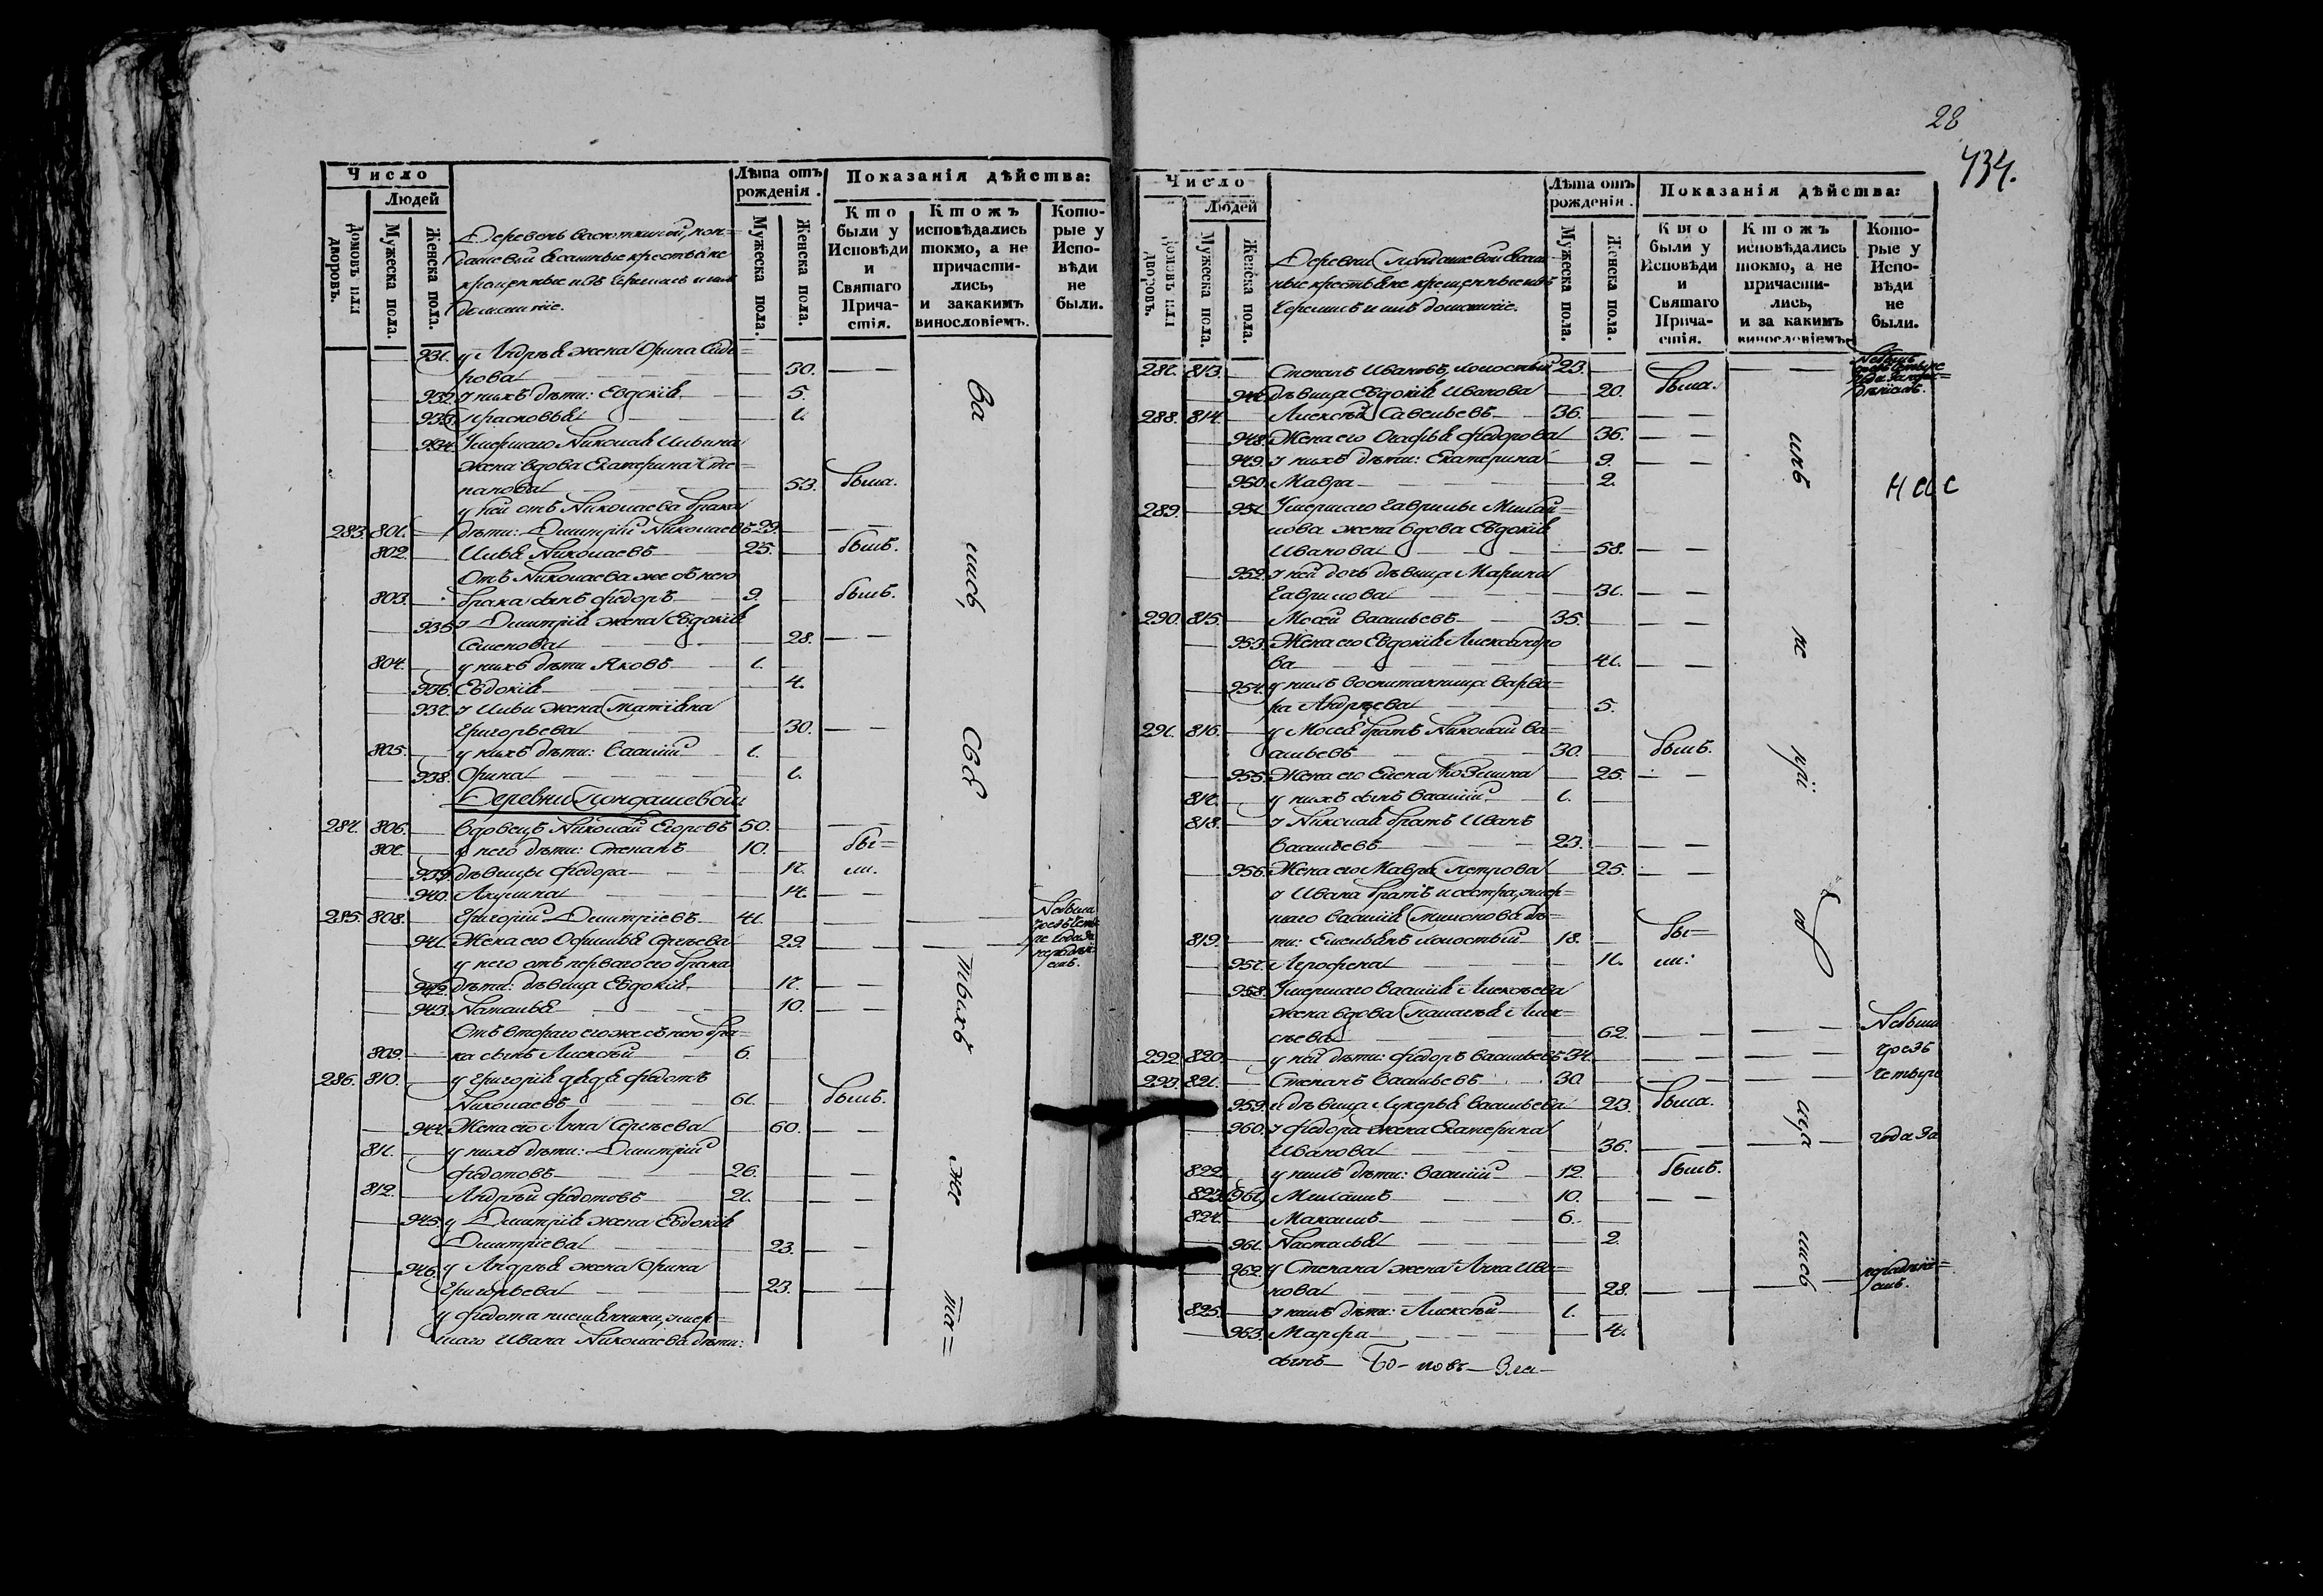 Число
Людей
Домовъ или дворовъ.
Мужеска пола.
Женска пола.
Лѣта отъ рожденія.
Мужеска пола.
Женска пола.
Показанія дѣйства:
Кто были у Исповѣди и Святаго Причастія.
Ктожъ исповѣдались токмо, а не причастились, и закакимъ винословіемъ.
Которые у Исповѣди не были.
931. у Андрѣя жена Орина Сидо=
рова 30.
932. у нихъ дѣти: Евдокія 5.
933. Прасковья 1.
934. Умершаго Николая Ильина
жена вдова Екатерина Сте=
панова 53. была.
у ней отъ Николаева брака
283. 801. дѣти: Димитрій Николаевъ 29.
802. Илья Николаевъ 25. былъ.
Отъ Николаева же съ нею
803. брака сынъ Федоръ 9. былъ.
935. у Димитрія жена Евдокія
Семенова 28.
804. у нихъ дѣти Яковъ 1.
936. Евдокія 4.
937. у Ильи жена Татіяна
Григорьева 30.
805. у нихъ дѣти: Василій 1.
938. Орина 1.
Деревни Пондашевой
284. 806. вдовецъ Николай Егоровъ 50.
807. у него дѣти: Степанъ 10. бы=
939. дѣвицы Федора 17. ли.
940. Акулина 14.
285. 808. Григорій Димитріевъ 41.
941. Жена его Офимья Сергѣева 29.
у него отъ перваго его брака
942. дѣти: дѣвица Евдокія 17.
943. Наталья 10.
Отъ втораго его же съ нею бра=
809. ка сынъ Алексѣй 6.
286. 810. у Григорія дядя Федотъ
Николаевъ 61. былъ.
944. Жена его Анна Сергѣева 60.
811. у нихъ дѣти: Димитрій
Федотовъ 26.
812. Андрѣй Федотовъ 21.
945. у Димитрія жена Евдокія
Димитріева 23.
946. у Андрѣя жена Орина
Григорьева 23.
у Федота племянники, умер=
шаго Ивана Николаева дѣти:
28
434.
Число
Людей
Домовъ или дворовъ.
Мужеска пола.
Женска пола.
Деревни Пондашевой
Лѣта отъ рожденія.
Мужеска пола.
Женска пола.
Показанія дѣйства:
Кто были у Исповѣди и Святаго Причастія.
Ктожъ исповѣдались токмо, а не причастились, и за какимъ винословіемъ.
Которые у Исповѣди не были.
287. 813. Степанъ Ивановъ, холостый 23.
947. дѣвица Евдокія Иванова 20. была.
288. 814. Алексѣй Савельевъ 36.
948. Жена его Огафья Федорова 36.
949. у нихъ дѣти: Екатерина 9.
950. Мавра 2.
289. 951. Умершаго Гаврилы Михай=
лова жена вдова Евдокія
Иванова 58.
952. у ней дочь дѣвица Марина
Гаврилова 31.
290. 815. Мосей Васильевъ 35.
953. Жена его Евдокія Александро
ва 41.
954. у нихъ воспитанница Варва=
ра Андрѣева 5.
291. 816. у Мосея братъ Николай Ва=
сильевъ 30. былъ.
955. Жена его Елена Козмина 25.
817. у нихъ сынъ Василій 1.
818. у Николая братъ Иванъ
Васильевъ 23.
956. Жена его Мавра Петрова 25.
у Ивана братъ и сестра, умер=
шаго Василія Тимонова дѣ=
819. ти: Емельянъ холостый 18. бы=
957. Агрофена ли:
958. Умершаго Василія Алексѣева
жена вдова Палагѣя Алек=
сѣева 62. Небыли
292. 820. у ней дѣти: Федоръ Васильевъ 34. чрезъ
293. 821. Степанъ Васильевъ 30. четыре
959. и дѣвица Лукерья Васильева 23. была.
960. у Федора жена Екатерина
Иванова 36. года за
822. у нихъ дѣти: Василій 12. былъ.
823. 961. 10.
824. Максимъ 6.
961. Настасья 2.
962. у Степана жена Анна Ива=
нова 28. нерадѣні=
емъ.
825. у нихъ дѣти: Алексѣй 1.
963. Марфа 4.